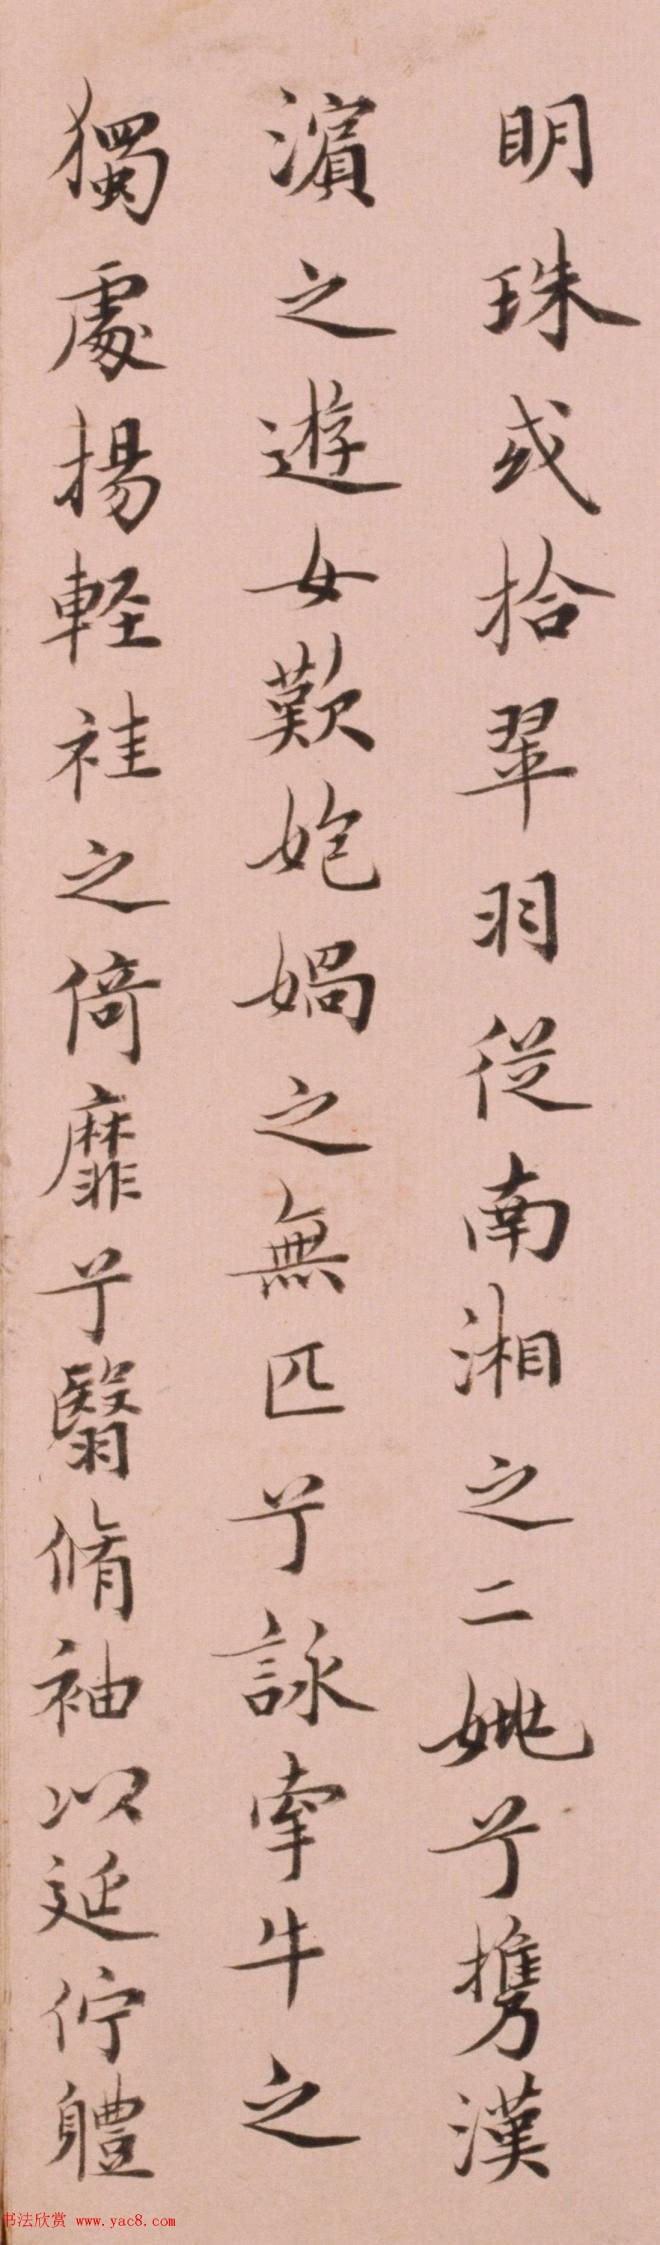 明珠或拾翠羽從南湘之二姚兮攜漢
濵之遊女歎匏媧之無匹兮詠牽牛之
獨處揚軽袿之倚靡兮翳脩袖以延佇軆
书法欣赏 www.yac8.com